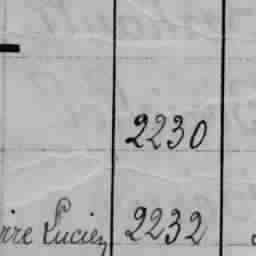 2230
irre Lucien 2232